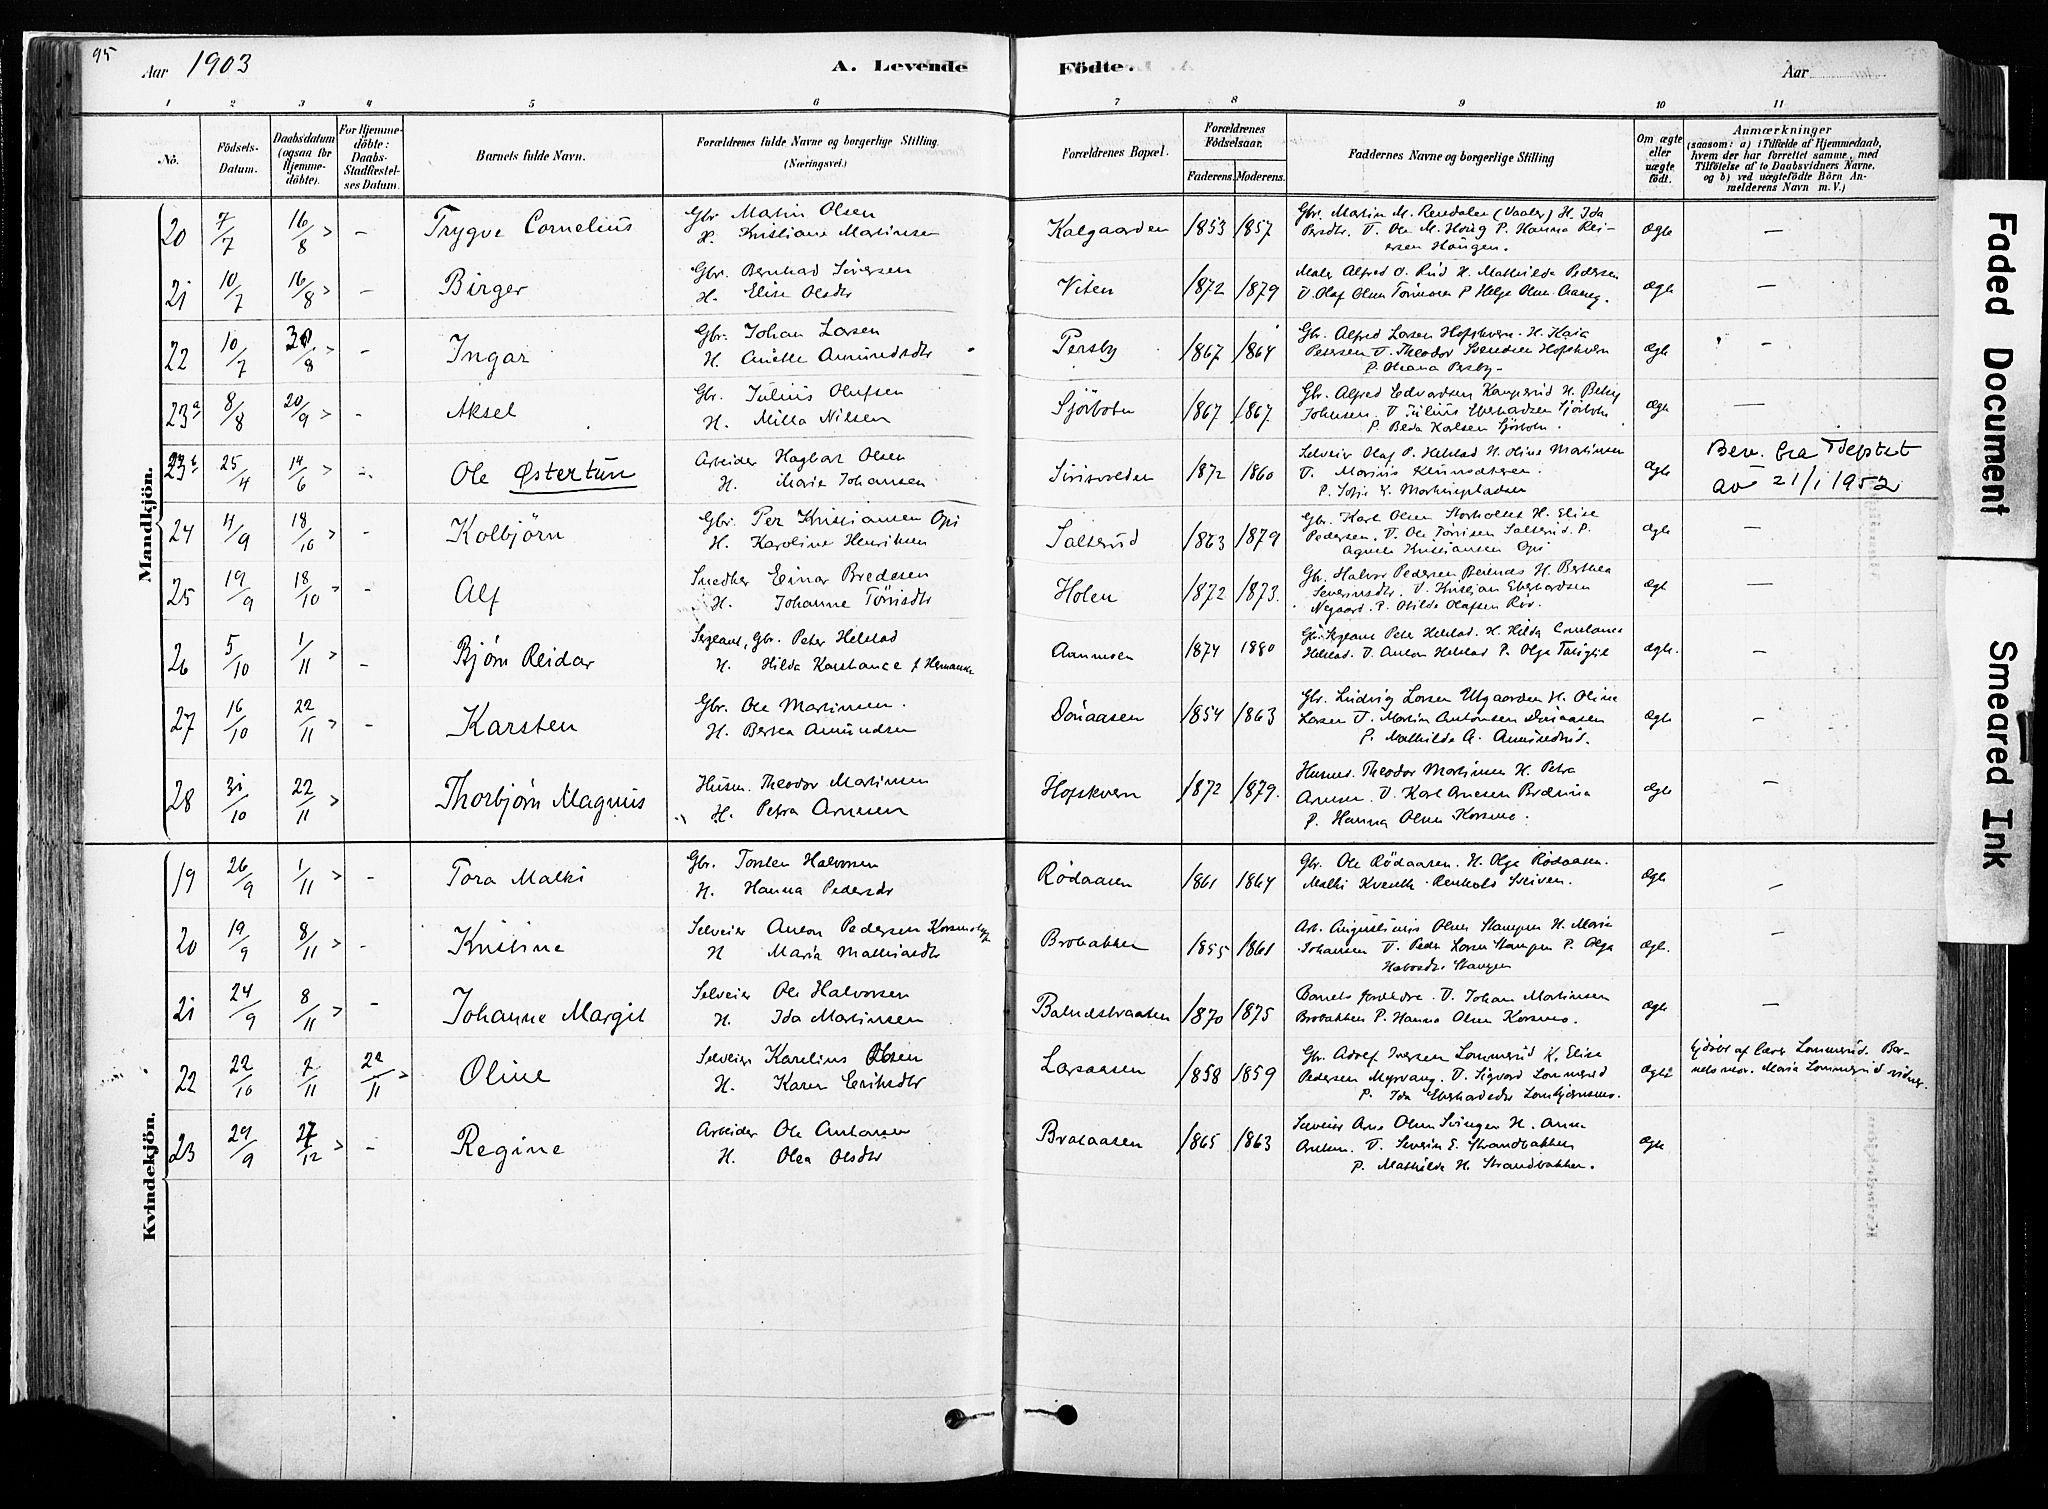 95
Aar 1903
A. Levende Födte.
Aar
1 2 3 4 5 6 7 8 9 10 11
No.
Födsels-Datum.
Daabsdatum (ogsaa for Hjemmedöbte).
For Hjemmedöbte: Daabs-Stadfæstelses Datum.
Barnets fulde Navn.
Forældrenes fulde Navne og borgerlige Stilling. (Næringsvei.)
Forældrenes Bopæl.
Forældrenes Födselsaar.
Faderens. Moderens.
Faddernes Navne og borgerlige Stilling
Om ægte eller uægte födt.
Anmærkninger
(saasom: a) i Tilfælde af Hjemmedaab, hvem der har forrettet samme, med Tilföielse af to Daabsvidners Navne. og b) ved uægtefödte Börn Anmelderens Navn m. V.)
Mandkjön.
20 7/7 16/8 > - Trygve Cornelius
Gbr. Martin Olsen
H. Kristiane Martinsen
Kalgaarden 1853 1857
Gbr. Martin M. Rendalen (Vaaler) H. Ida
Persdtr. V. Ole M. Houg P. Hanna Rei-
ersen Haugen.
Ægte -
21 10/7 16/8 > - Birger
Gbr. Bernhad Siversen
H. Elise Olsdtr
Viten 1872 1879
Maler Alfred O. Rud H. Mathilde Pedersen
V. Olaf Olsen P. Helge Olsen
Ægte -
22 10/7 30/8 > - Ingar
Gbr. Johan Larsen
H. Anette Amundsdtr
Persby 1867 1864
Gbr. Alfred Larsen Hofskvern. H. Kaia
Petersen V. Theodor Svendsen Hofskvern
P. Oleana Persby-
Ægte -
23a 8/8 20/9 > - Aksel
Gbr. Julius Olufsen
H. Milla Nilsen
Sjörbotn 1867 1867
Gbr. Alfred Edvardsen Kamperud H. Betsy
Johnsen. V. Julius Eberhadsen Sjörbotn
P. Beda Karlsen Sjörbotn.
Ægte -
23b 25/4 14/6 - Ole Østertun
Arbeider Hagbart Olsen
H. Marie Johansen
1872 1860
Selveier Olaf P. Helstad H. Oline Martinsen
V. Marius
P. Sofie E.
Ægte
Bev. fra Depbet
av 21/1 1952
24 11/9 18/10 > - Kolbjörn
Gbr. Per Kristiansen Opi
H. Karoline Henriksen
Salterud 1863 1879
Gbr. Karl Olsen Storholtet H. Elise
Pedersen. V. Ole Törrisen Salterud. P.
Agnete Kristiansen Opi
Ægte -
25 19/9 18/10 > - Alf
Snedker Einar Bredesen
H. Johanne Törrisdtr
Holen 1872 1873.
Gbr. Halvor Pedersen H. Berthea
Severinsdtr. V. Kristian Eberhardsen
Nygaard. P. Hilda Olafsen
Ægte -
26 5/10 1/11 > - Bjørn Reidar
Sergeant, Gbr. Peter Helstad
H. Hilda Konstance f. Hermansen
1874 1880
Gbr. Sergeant Peter Helstad. H. Hilda Constance
Helstad. V. Anton Helstad P. Olga
ægte. -
27 16/10 22/11 > - Karsten
Gbr. Ole Martinsen.
H. Berthea Amundsen
Donaasen 1854 1863
Gbr. Ludvig Larsen Utgaarden H. Oline
Larsen V. Martin Antonsen Donaasen
P. Mathilde A. Amundrud.
Ægte -
28 31/10 22/11 > Thorbjörn Magnus
Husm. Theodor Martinsen
H. Petra Arnesen
Hofskvern 1872 1879.
Husm. Theodor Martinsen H. Petra
Arnesen V. Karl Arnesen
P. Hanna Olsen Korsmo.
Ægte -
Kvindekjön.
19 26/9 1/11 > - Tora Malki
Gbr. Torsten Halvorsen
H. Hanna Pedersdtr
Rödaasen 1861 1864
Gbr. Ole Rödaasen. H. Olga Rödaasen.
Malki
Ægte -
20 19/9 8/11 > - Kristine
Selveier Anton Pedersen
H Maria Mathiasdtr
Brobakken 1855 1861
Arb. Augustinus Olsen Stampen H. Marie
Johansen V. Peder Larsen Stampen P. Olga
Halvorsdtr Stampen
Ægte. -
21 24/9 8/11 > - Johanne Margit
Selveier Ole Halvorsen
H. Ida Martinsen
1870 1875
Barnets forældre. V. Johan Martinsen
Brobakken P. Hanna Olsen Korsmo.
Ægte -
22 22/10 7/11 22/11 > Oline
Selveier Karelius Olsen
H. Karen Eriksdtr
Larsaasen 1858 1859
Gbr. Adolf Iversen Lommerud K. Elise
Pedersen Myrvang. V. Sigvard Lommerud
P. Ida Eberhadsdtr
Ægte
hjdöbt af lærer Lommerud. Bar-
nets mor. Maria Lommerud vidner.
23 29/9 27/12 > - Regine
Arbeider Ole Antonsen
H. Olea Olsdtr
Brataasen 1865 1863
Selveier Arne Olsen Svingen H. Anne
V. Severin E. Strandbakken
P. Mathilde H. Strandbakken.
Ægte
Faded Document
Smeared Ink